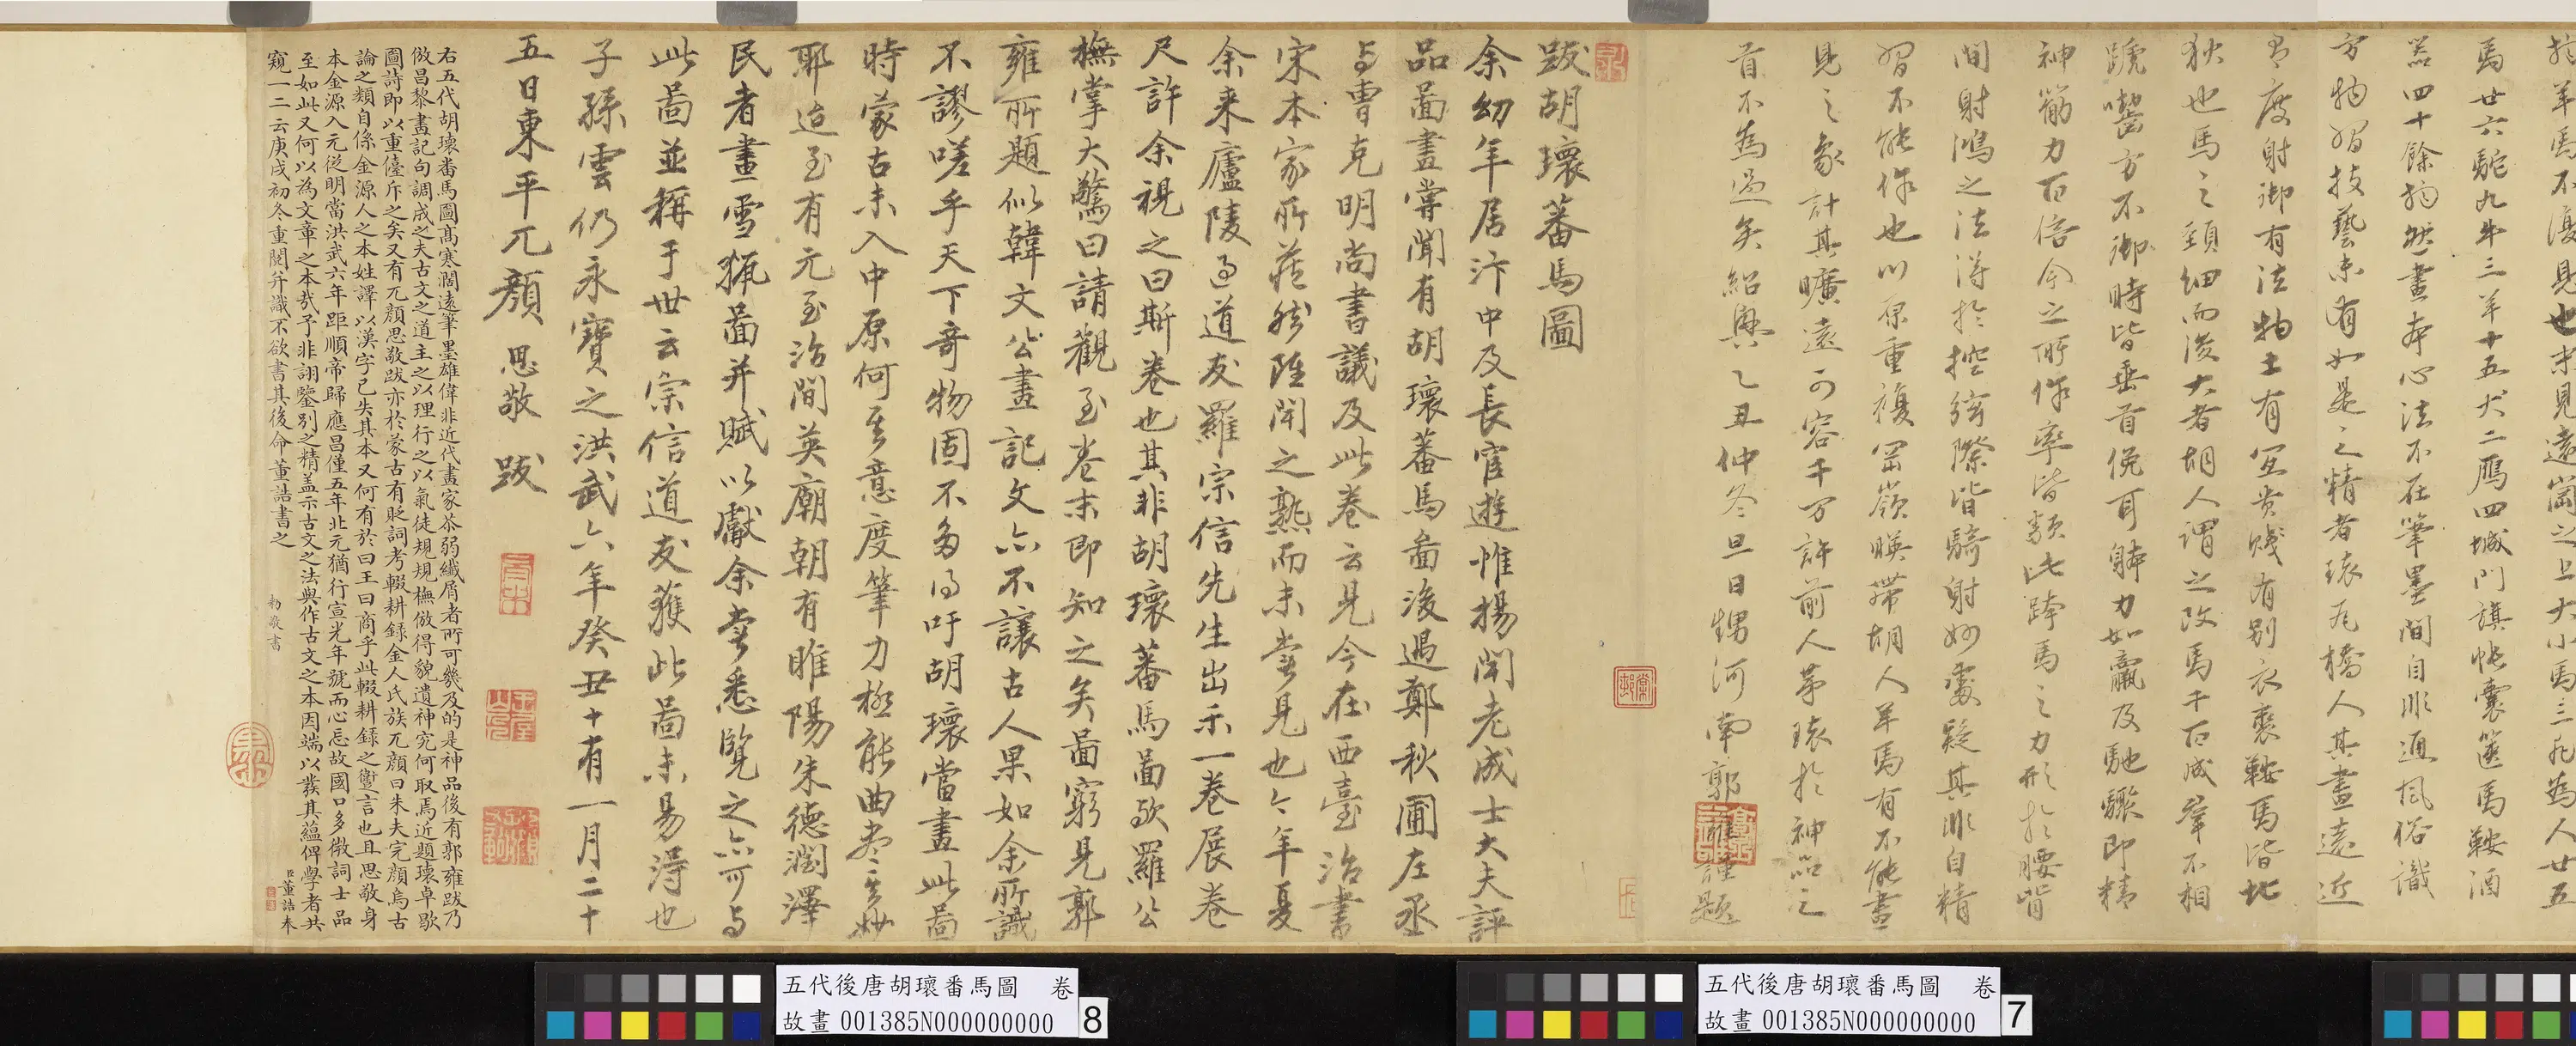 馬廿六駝九牛三羊十五犬二鴈四城門旗帳囊篋馬鞍酒
器四十餘物然畫本心法不在筆墨間自非通風俗識
方物習技藝未有如是之精者瓌瓦橋人其畫遠近
有度射御有法物土有宜貴賤有别衣裘鞍馬皆北
狄也馬之頸細而後大者胡人謂之改馬千百成羣不相
蹏嚙方不御時皆垂首俛耳體力如羸及馳驟即精
神筋力百倍今之所作率皆類此蹄馬之力形於腰背
間射鴻之法得於控弦際皆騎射妙處疑其非自精
習不能作也以原重複崗嶺暎帶胡人羊馬有不能畫
見之象計其曠遠可容千万許前人第瓌於神品之
首不為過矣紹興乙丑仲冬旦日甥河南郭雍謹題
跋胡瓌蕃馬圖
余幼年居汴中及長宦遊惟揚聞老成士大夫評
品畵畫嘗聞有胡瓌蕃馬啚後過鄭秋圃左丞
与曹克明尚書議及此卷云見今在西臺治書
宋本家所藏然雖聞之熟而未嘗見也今年夏
余来廬陵過道友羅宗信先生出示一卷展卷
尺許余視之曰斯卷也其非胡瓌蕃馬啚歟羅公
撫掌大驚曰請觀至卷末即知之矣啚窮見郭
雍所題似韓文公畫記文亦不讓古人果如余所識
不謬嗟乎天下奇物固不多得吁胡瓌當畫此啚
時蒙古未入中原何其意度筆力極能曲盡其妙
耶迨至有元至治間英廟朝有睢陽朱德潤澤
民者畫雪獵啚并賦以獻余嘗悉覽之亦可与
此啚並稱于世云宗信道友獲此啚未易得也
子孫雲仍永寶之洪武六年癸丑十有一月二十
五日東平兀顏思敬跋
右五代胡瓌番馬圖高寒濶遠筆墨雄偉非近代畫家苶弱纖屑者所可幾及的是神品後有郭雍跋乃
倣昌黎畫記句調成之夫古文之道主之以理行之以氣徒規規橅倣得貌遺神究何取焉近題瓌卓歇
圖詩即以重儓斥之矣又有兀顏思敬跋亦於蒙古有貶詞考輟耕録金人氏族兀顏曰朱夫完顏烏古
論之類自係金源人之本姓譯以漢字已失其本又何有於曰王曰商乎此輟耕録之躗言也且思敬身
本金源入元從明當洪武六年距順帝歸應昌僅五年北元猶行宣光年號而心忘故國口多微詞士品
至如此又何以為文章之本哉予非詡鑒别之精蓋示古文之法與作古文之本因端以發其蘊俾學者共
窺一二云庚戌初冬重閱并識不欲書其後命董誥書之
臣董誥奉
勅敬書
五代後唐胡瓌番馬圖 卷
故畫 001385N000000000
8
五代後唐胡瓌番馬圖 卷
故畫 001385N000000000
7